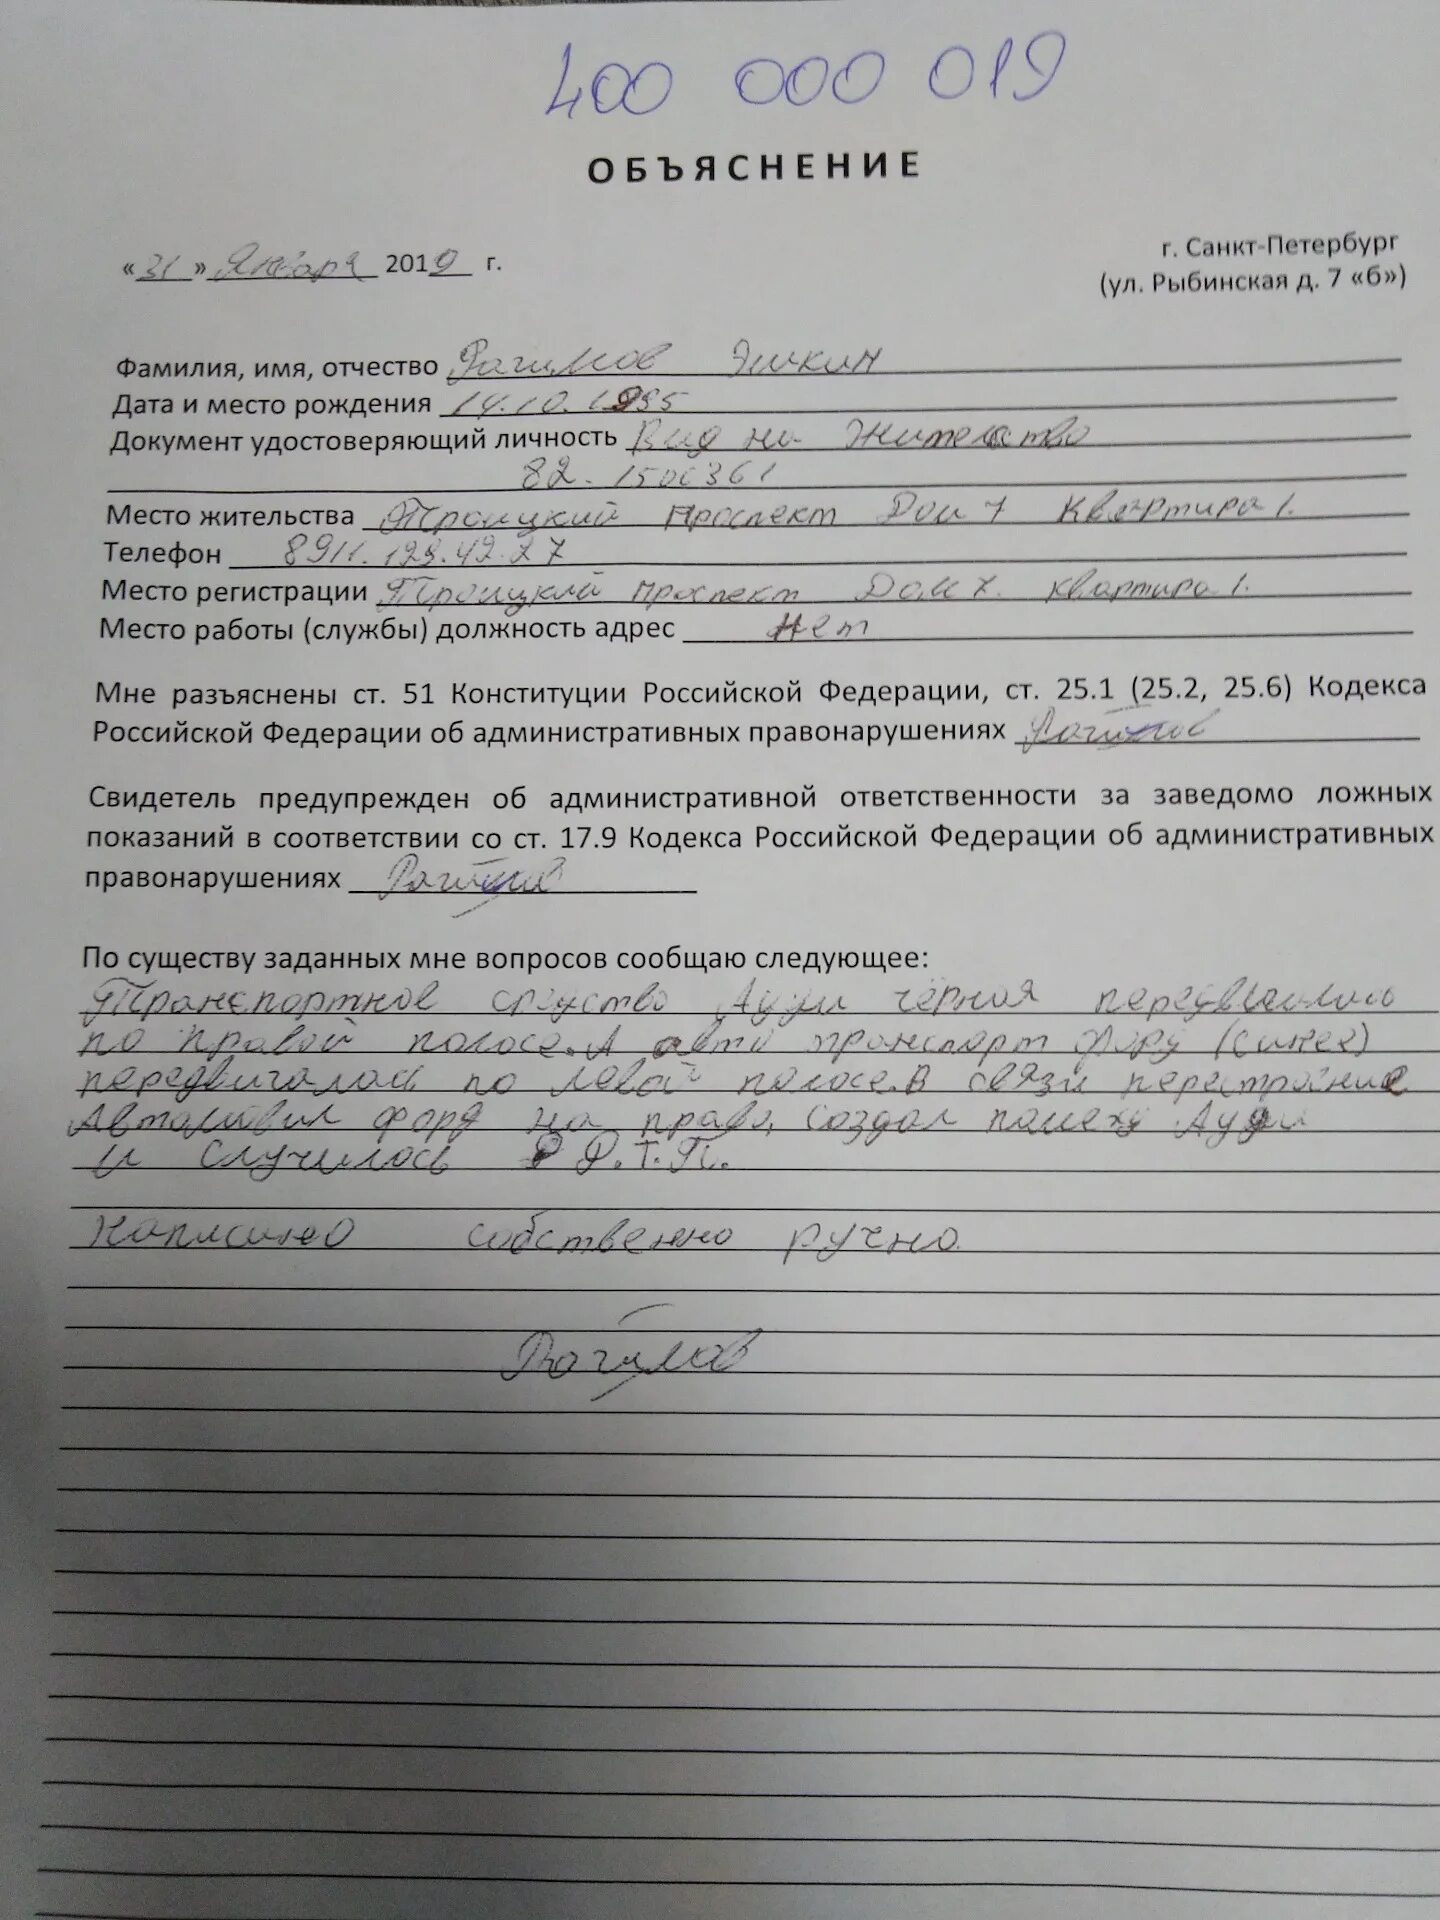 400 000 019
ОБЪЯСНЕНИЕ
г. Санкт-Петербург
(ул. Рыбинская д. 7 «б»)
«31» Января 2019 г.
Фамилия, имя, отчество Рагимов Эшкин
Дата и место рождения 14.10.1995
Документ удостоверяющий личность Вид на Жительство
82-1500361
Место жительства Троицкий проспект Дом 7 Квартира 1.
Телефон 8911.129.42.27
Место регистрации Троицкий проспект Дом 7. квартира 1.
Место работы (службы) должность адрес Нет
Мне разъяснены ст. 51 Конституции Российской Федерации, ст. 25.1 (25.2, 25.6) Кодекса
Российской Федерации об административных правонарушениях Рагимов
Свидетель предупрежден об административной ответственности за заведомо ложных
показаний в соответствии со ст. 17.9 Кодекса Российской Федерации об административных
правонарушениях Рагимов
По существу заданных мне вопросов сообщаю следующее:
Транспортное средство Ауди чёрная передвигалась
по правой полосе. А авто транспорт Форд (синее)
передвигалась по левой полосе. В связи перестроение
Автомобил форд на права, создал помеху Ауди
и Случилось Д.Т.П.
Написано собственно ручно.
Рагимов